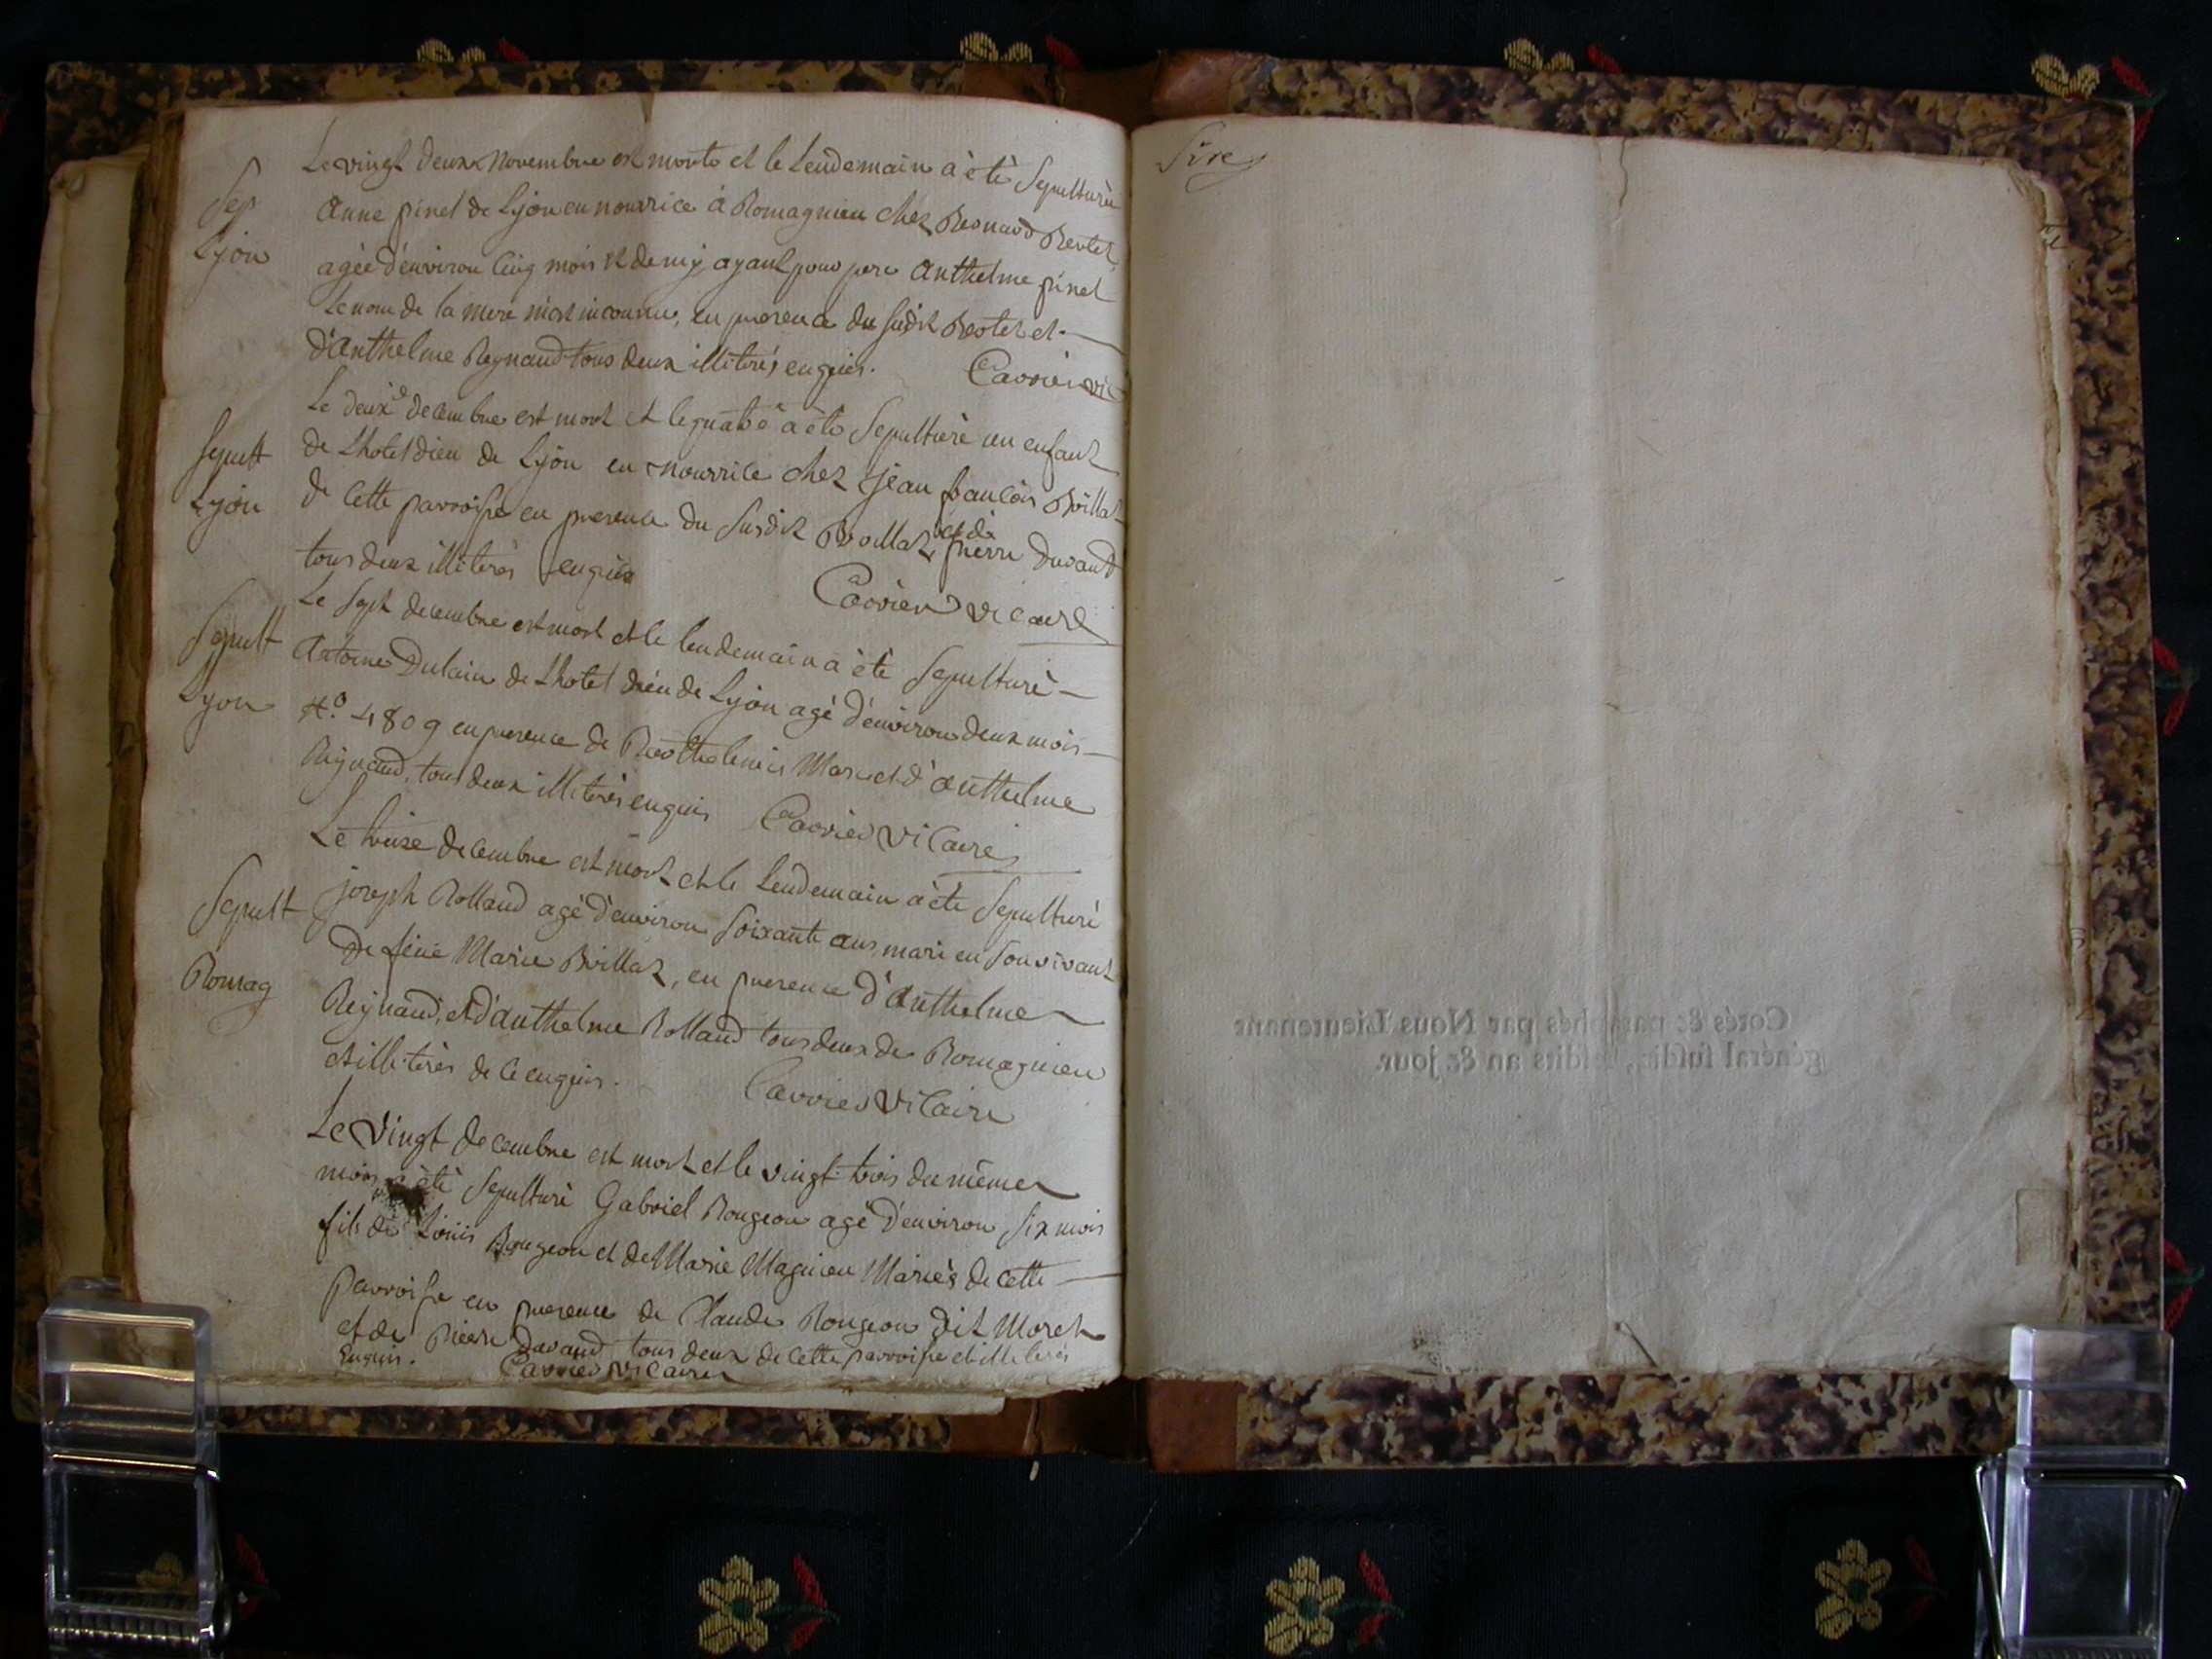 Le vingt deux Novembre est morte et le lendemain à èté Sepulturèe
Sep
Anne pinet de Lyon en nourrice à Romagnieu chez Bernard Bertet
Lyon
agèe d'environ Cinq mois et demy ayant pour pere Anthelme pinet
Le nom de la mere m'est inconnu, en presence du susdit Bertet et
d'Anthelme Reynaud tous deux illiterés enquis.
Carrier vic
Le deuxe decembre est mort et le quatre à èté Sepulturè un enfant
Sepult
de Lhotel dieu de Lyon en nourrice chez Jean francois Boillat
Lyon
de Cette parroisse en presence du susdit Boillat, et de pierre Durand
tous deux illiterès enquis
Carrier vicaire
Le Sept decembre est mort et le lendemain a èté Sepulturè
Sepult
Antoine Dulain de Lhotel dieu de Lyon agé d'environ deux mois
Lyon
No. 4809 en presence de Barthelemis Marc et d'anthelme
Reignaud, tous deux illiterès enquis
Carrier Vicaire
Le treize decembre est mort et le lendemain à ète Sepulturè
Sepult
joseph Rolland agè d'environ soixante ans, mari en son vivant
de feüe Marie Boillat, en presence d'Anthelme
Romag
Reignaud, et d'anthelme Rolland tous deux de Romagnieu
et illiterès de ce enquis.
Carrier Vicaire
Le Vingt decembre est mort et le vingt trois du même
mois à èté Sepulturè Gabriel Rougeon agè d'environ six mois
fils de Loüis Rougeon et de Marie Magnien Mariès de cette
Parroisse en presence de Claude Rougeon dit Moret
et de Pierre Durand tous deux de cette parroisse et illiterès
Enquis.
Carrier Vicaire
Sire
Cotés & paraphés par Nous Lieutenant
général susdit, susdits an & jour.